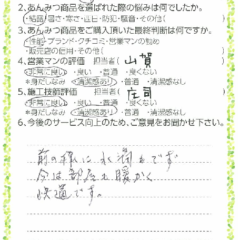 2.あんみつ商品を選ばれた際の悩みは何でしたか。
・結露・暑さ・寒さ・遮音・防犯・騒音・その他( )
3.あんみつ商品をご購入頂いた最終判断は何ですか。
・性能・ブランド・クチコミ・営業マンの勧め
・販売店の信用・その他( )
4.営業マンの評価 担当者( 山賀 )
・非常に良い ・良い ・普通 ・良くない
※身だしなみ(清潔感あり ・普通 ・清潔感なし)
5.施工技師評価 担当者( 庄司 )
・非常に良い ・良い ・普通 ・良くない
※身だしなみ(清潔感あり ・普通 ・清潔感なし)
6.今後のサービス向上のため、ご意見をお聞かせ下さい。
前の様に水滴もです
今は部屋も暖かく
快適です。